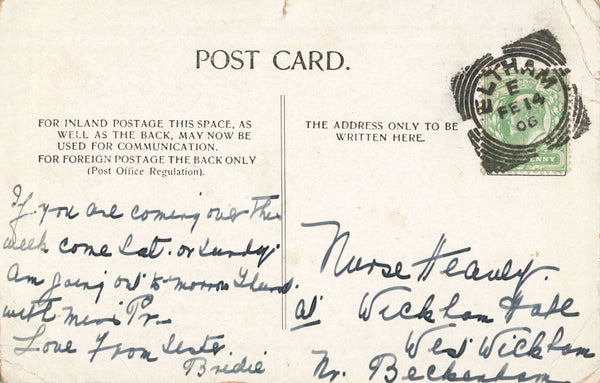 POST CARD.
ELTHAM
E
FE 14
06
FOR INLAND POSTAGE THIS SPACE, AS
WELL AS THE BACK, MAY NOW BE
USED FOR COMMUNICATION.
FOR FOREIGN POSTAGE THE BACK ONLY
(Post Office Regulation).
THE ADDRESS ONLY TO BE
WRITTEN HERE.
If you are coming over this
week come Sat. or Sunday.
Am going out to-morrow Thurs.
with
Love From Sister
Bridie
Nurse
at Wickham Hall
West Wickham
Nr. Beckenham